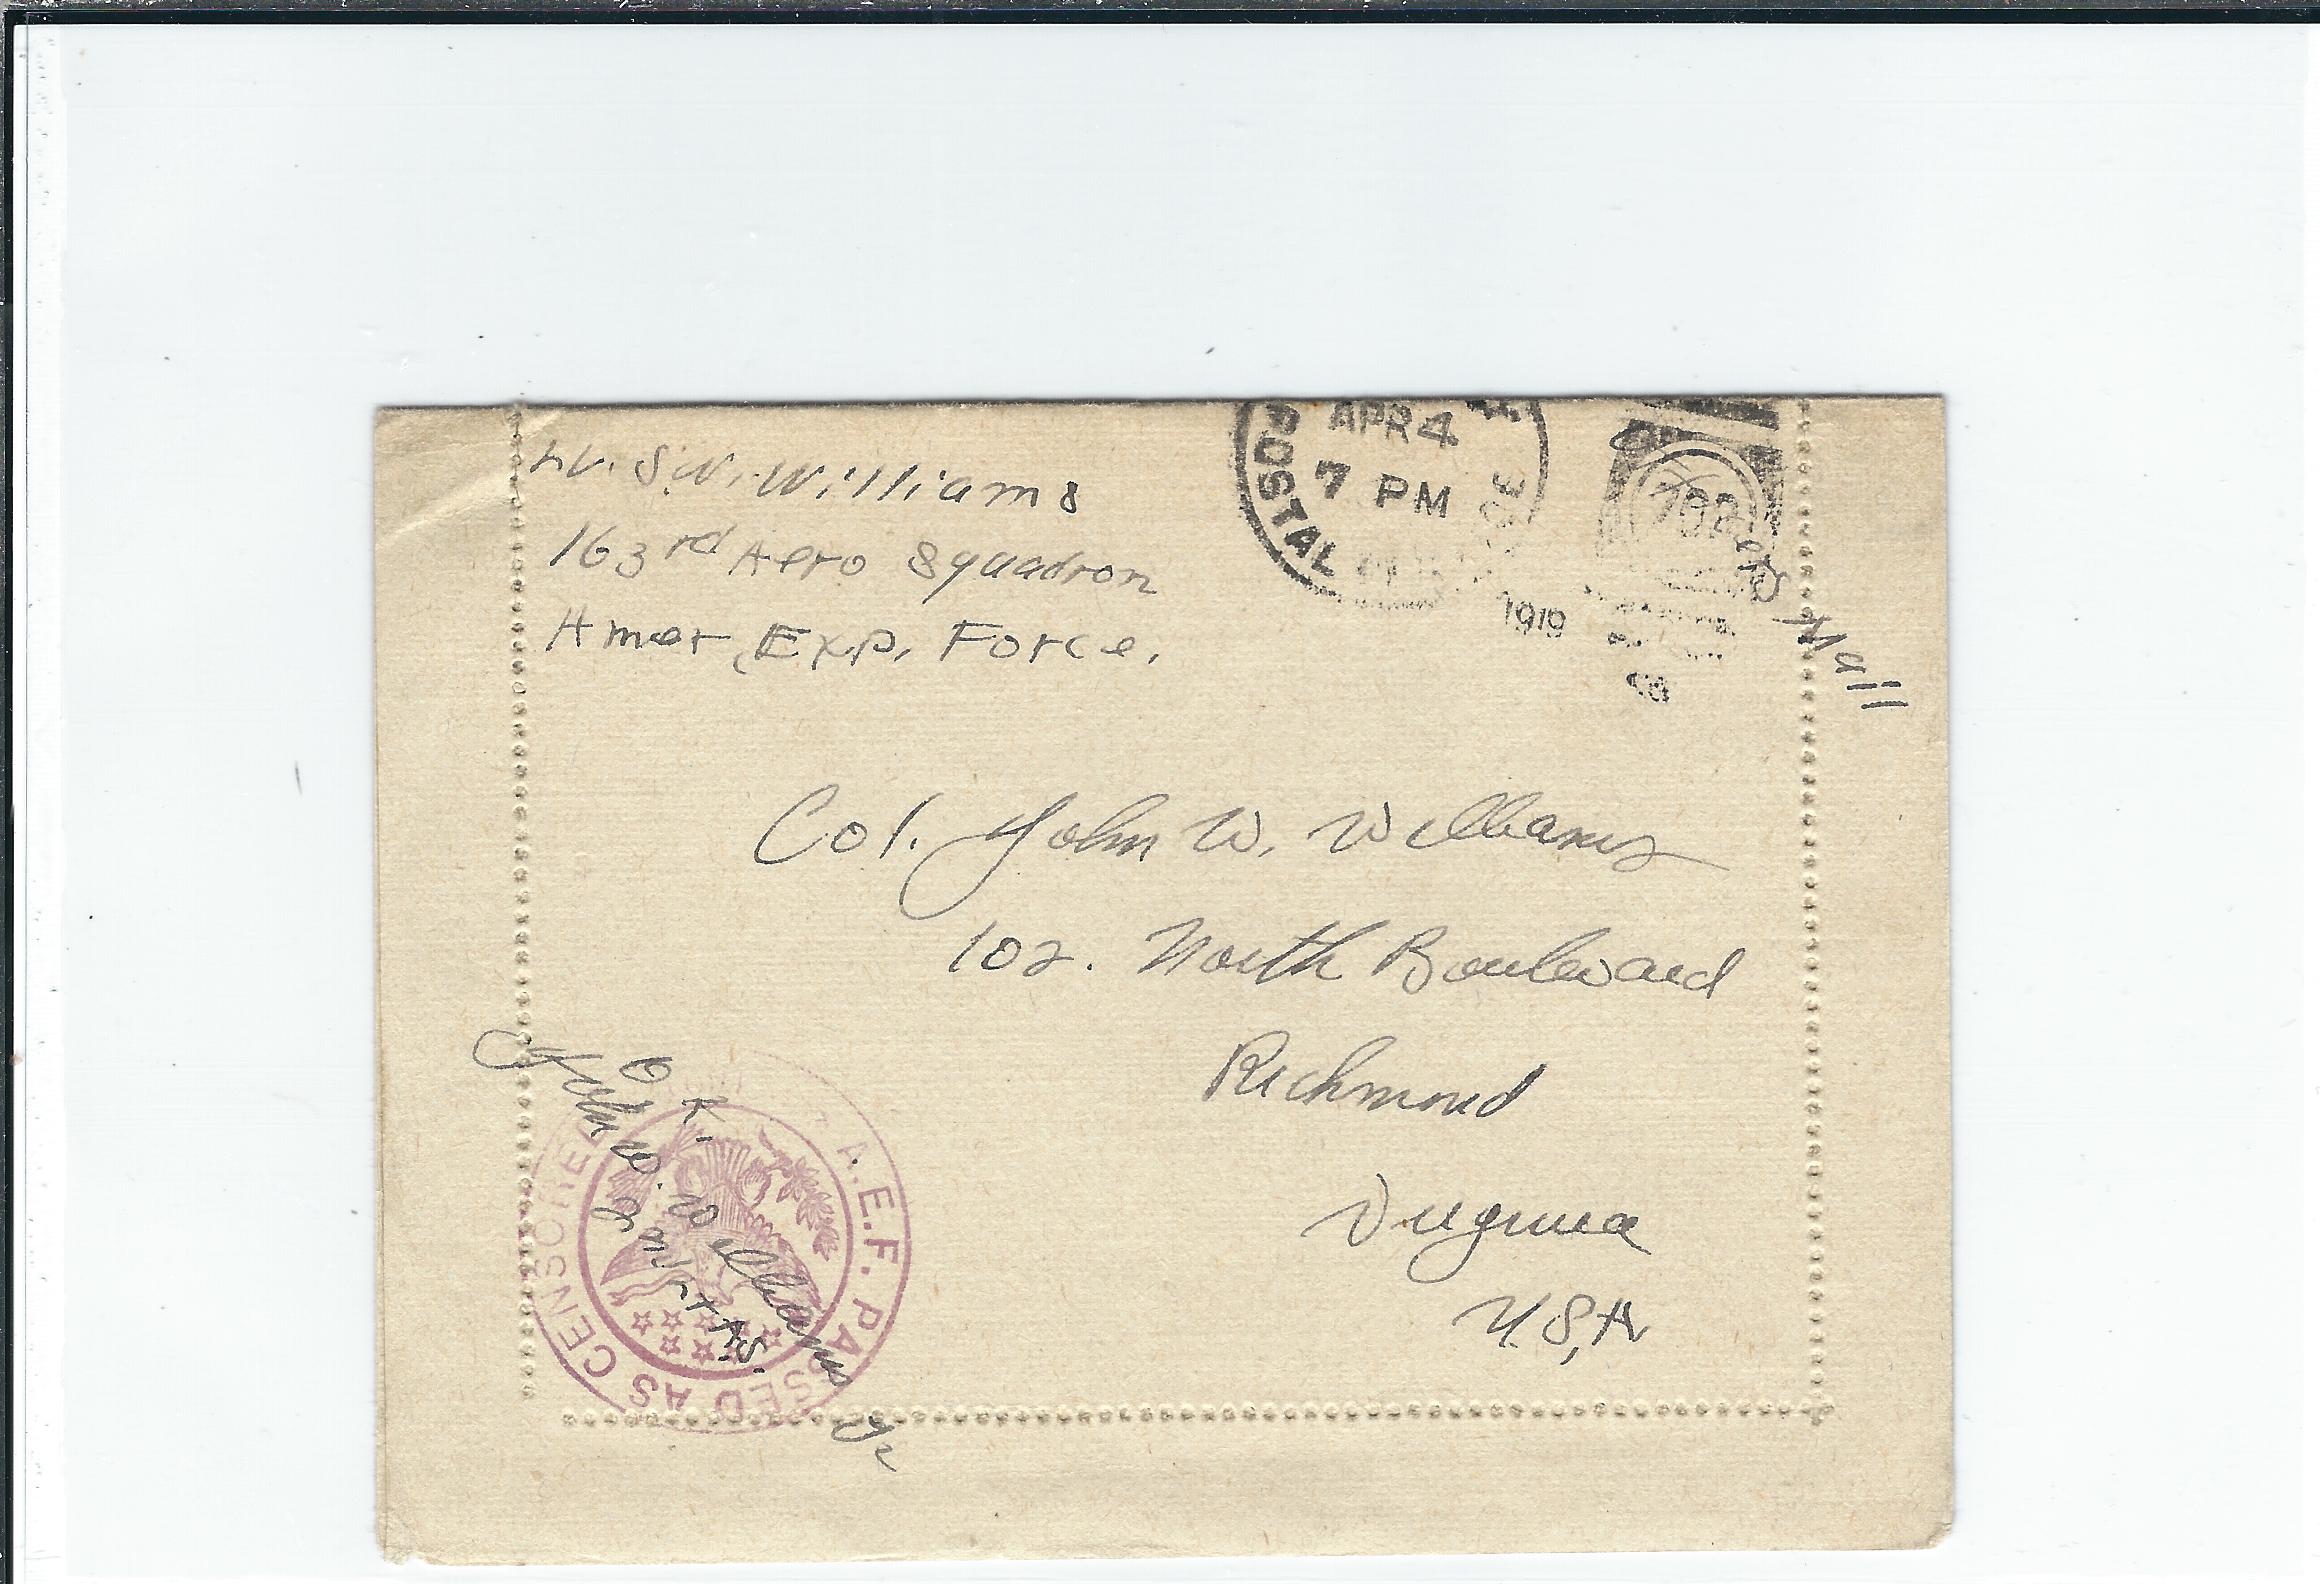 Lt. S. W. Williams
163rd Aero Squadron
Amer. Exp. Force.
POSTAL
APR 4
7 PM
1919
702
Mail
Col. John W. Williams
102. North Boulevard
Richmond
Virginia
U.S.A
O.K.
John W. Williams Jr
2nd Lt. A.S.
A.E.F. PASSED AS CENSORED